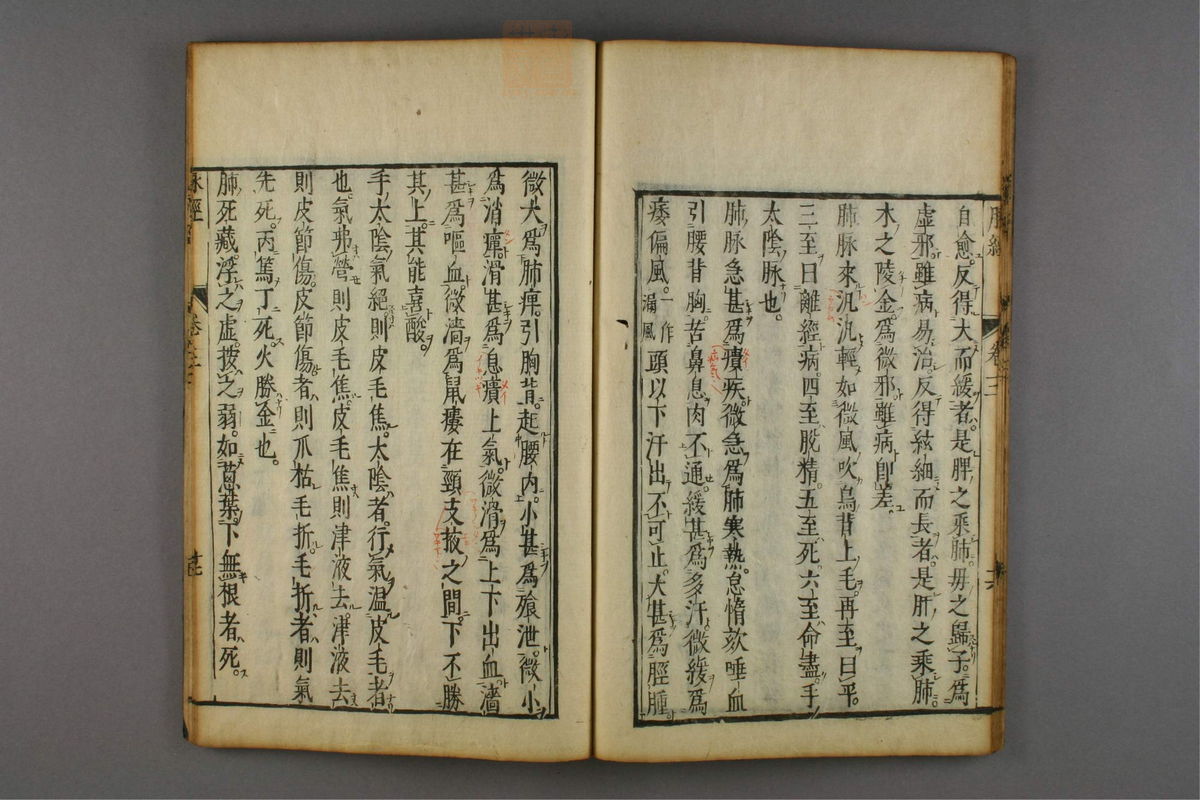 自愈反得大而緩者是脾之乘肺毋之歸子爲
虛邪雖病易治反得弦細而長者是肝之乘肺
木之陵金爲微邪雖病卽差
肺脉來汎汎輕如微風吹鳥背上毛再至曰平
三至曰離經病四至脫精五至死六至命盡手
太陰脉也
肺脉急甚爲癲疾微急爲肺寒熱怠惰欬唾血
引腰背胸苦鼻息肉不通緩甚爲多汗微緩爲
痿偏風一作漏風頭以下汗出不可止大甚爲脛腫
微大爲肺痺引胸背起腰內小甚爲飱泄微小
爲消癉滑甚爲息賁上氣微滑爲上下出血濇
甚爲嘔血微濇爲鼠瘻在頸支掖之間下不勝
其上其能喜酸
手太陰氣絕則皮毛焦太陰者行氣温皮毛者
也氣弗營則皮毛焦皮毛焦則津液去津液去
則皮節傷皮節傷者則爪枯毛折毛折者則氣
先死丙篤丁死火勝金也
肺死藏浮之虛按之弱如葱葉下無根者死